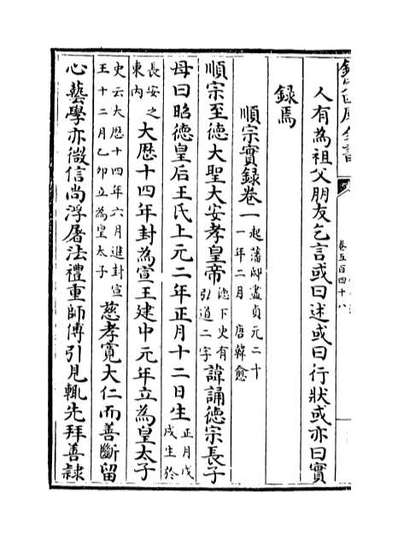 欽定四庫全書
卷五百四十八
人有為祖父朋友乞言或曰述或曰行狀或亦曰實
錄焉
順宗實錄卷一起藩邸盡貞元二十一年二月 唐韓愈
順宗至德大聖大安孝皇帝德下史有弘道二字諱誦德宗長子
母曰昭德皇后王氏上元二年正月十二日生正月戊戌生於
長安之東內大歷十四年封為宣王建中元年立為皇太子
史云大歷十四年六月進封宣王十二月乙卯立為皇太子慈孝寛大仁而善斷留
心藝學亦微信尚浮屠法禮重師傅引見輒先拜善隸